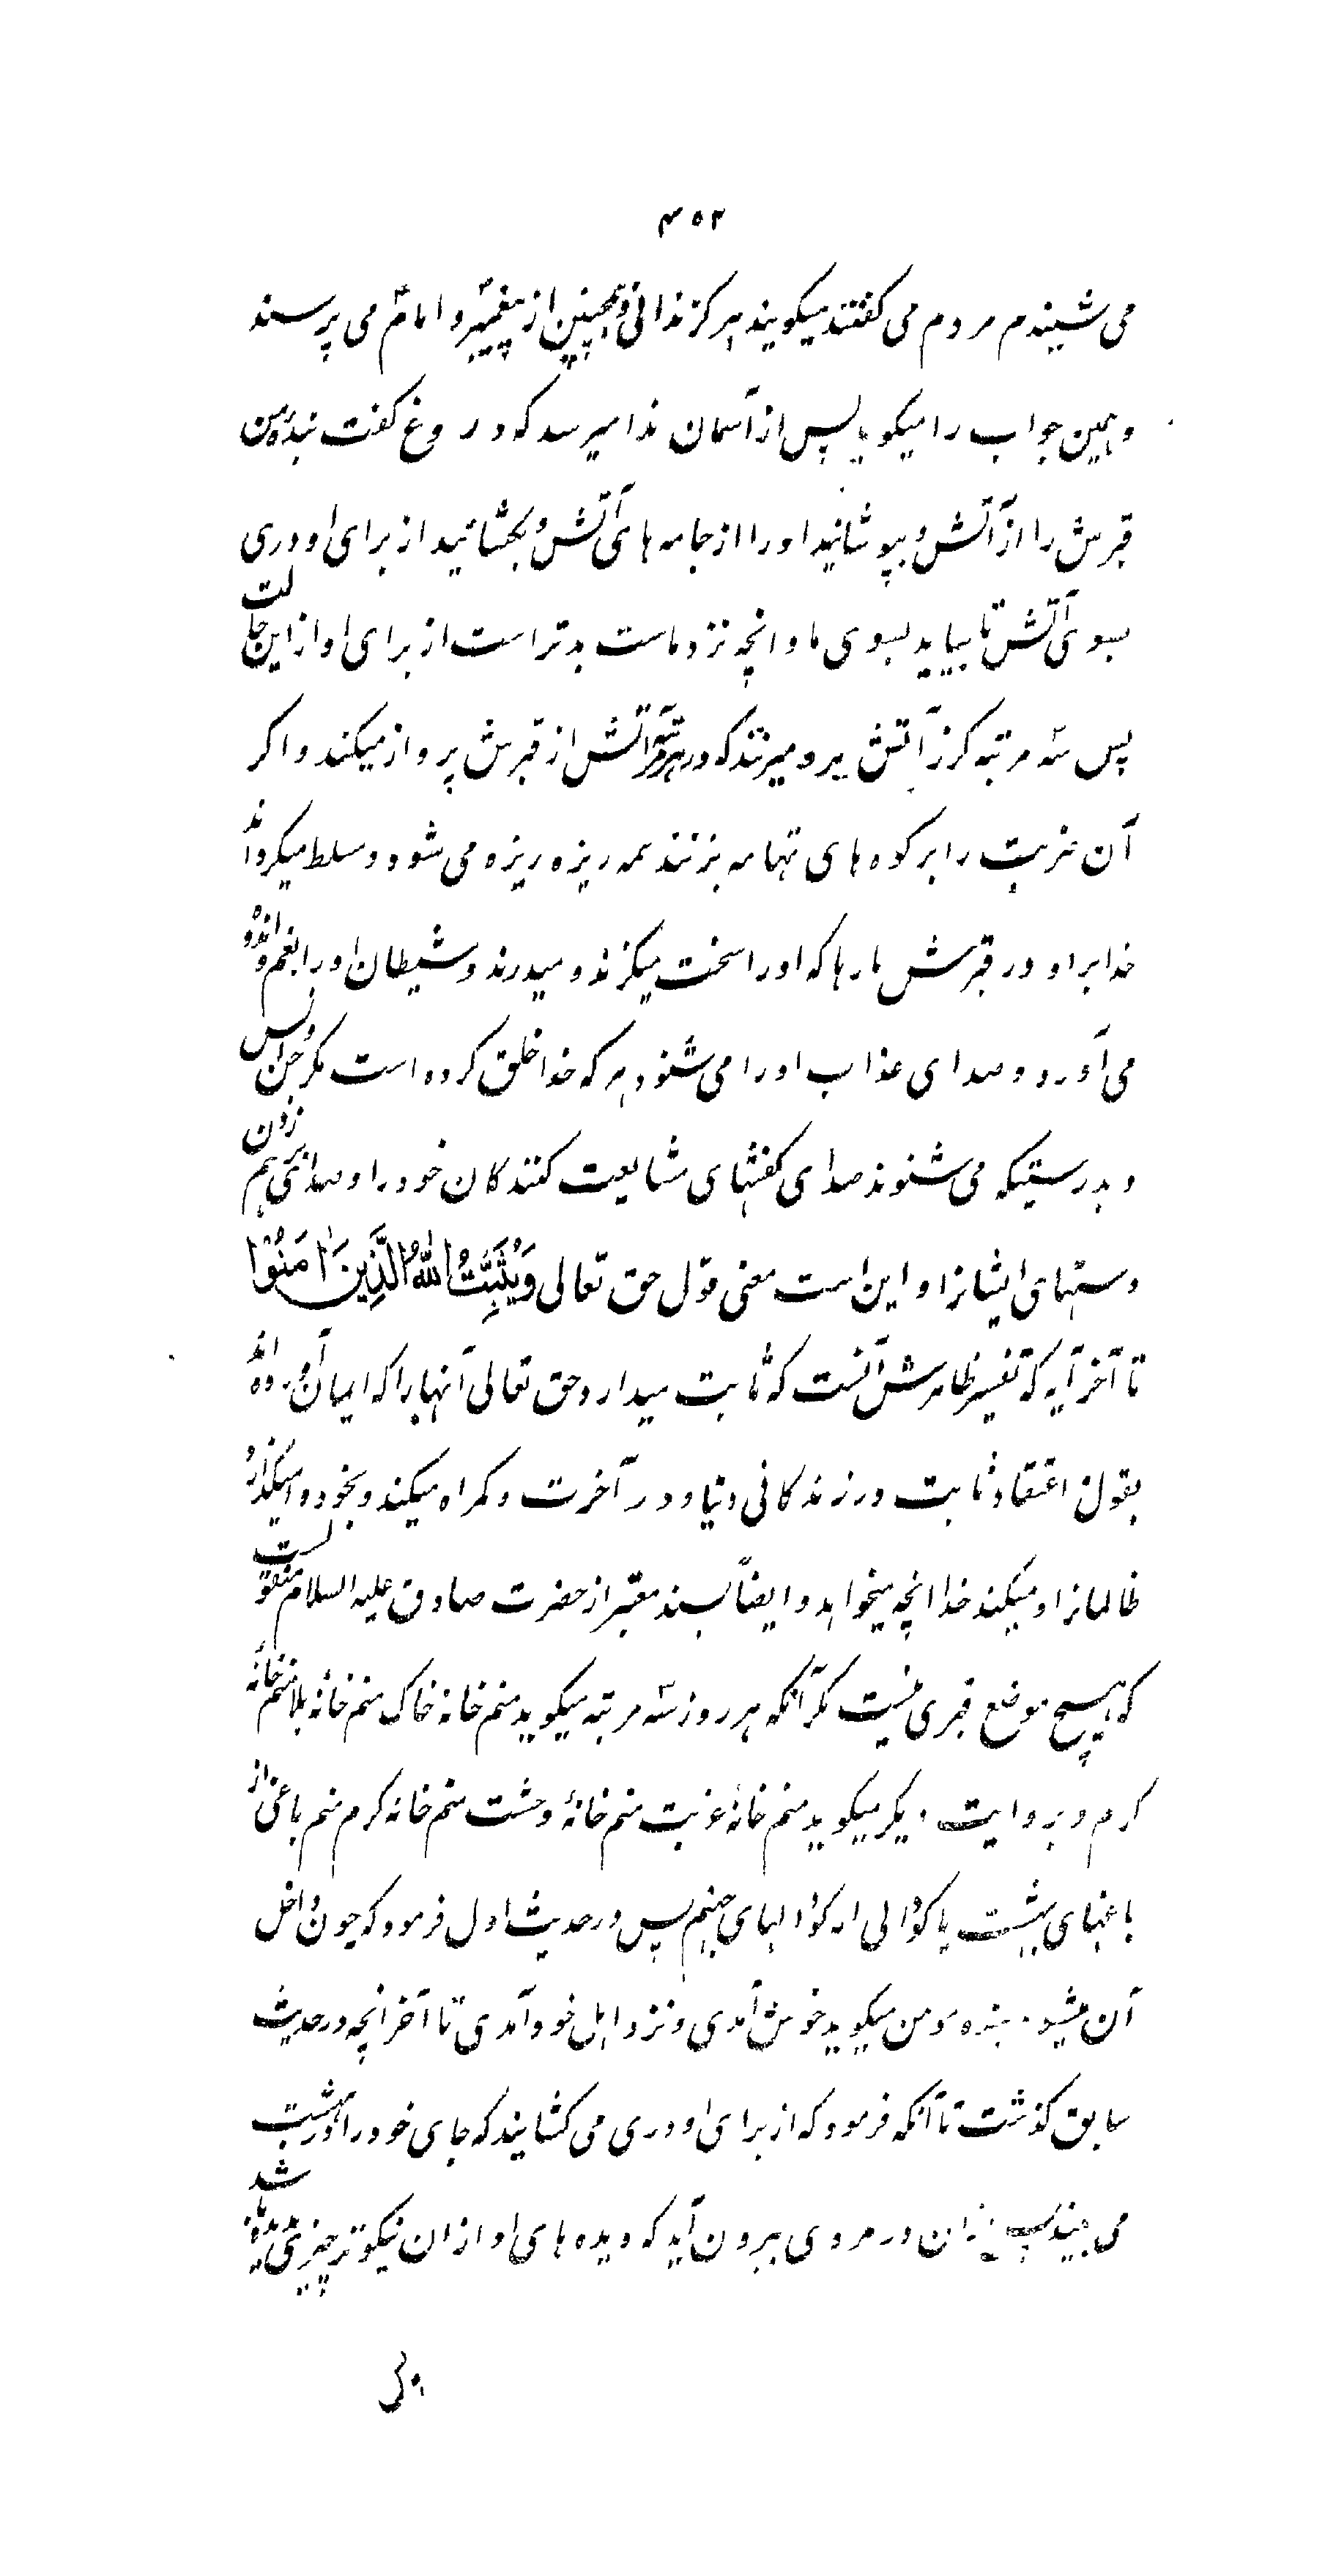 ۴۵۲
می شنیدم مردم می کفتند میکویند هرکز ندانی و همچنین از پیغمبر و امام می پرسند
و همین جواب را میکوید پس از آسمان ندا میرسد که دروغ کفت بنده من
قبرش را از آتش و بپوشانید او را از جامه های آتش و بکشائید از برای او دری
بسوی آتش تا بیاید بسوی ما و انچه نزد ماست بدتر است از برای او از این حالت
پس سه مرتبه کرز آتش برو میزنند که در هر مرتبه آتش از قبرش پرواز میکند و اکر
آن ضربت را بر کوه های تهامه بزنند همه ریزه ریزه می شود و مسلط میکرداند
خدا بر او در قبرش مارها که او را سخت میکزند و میدرند و شیطان او را بغم و اندوه
می آورد و صدای عذاب او را می شنود هر که خدا خلق کرده است مکر جن و انس
و بدرستیکه می شنوند صدای کفشهای مشایعت کنندکان خود را و صدای برهم زدن
دستهای ایشانرا و این است معنی قول حق تعالی وَيُثَبِّتُ اللهُ الَّذِينَ اٰمَنُوْا
تا آخر آیه که تفسیر ظاهرش آنست که ثابت میدارد حق تعالی آنها را که ایمان آورده اند
بقول اعتقاد ثابت در زندکانی دنیا و در آخرت و کمراه میکند و بخود وامیکذارد
ظالمانرا و میکند خدا انچه میخواهد و ایضاً بسند معتبر از حضرت صادق علیه السلام منقولست
که هیچ موضع قبری نیست مکر آنکه هر روز سه مرتبه میکوید منم خانه خاک منم خانهٔ بلا منم خانهٔ
کرم و بروایت دیکر میکوید منم خانهٔ غربت منم خانهٔ وحشت منم خانه کرم منم باغی از
باغهای بهشت یا کودالی از کودالهای جهنم پس در حدیث اول فرمود که چون داخل
آن میشود بنده مومن میکوید خوش آمدی و نزد اهل خود آمدی تا آخر انچه در حدیث
سابق کذشت تا آنکه فرمود که از برای او دری می کشایند که جای خود را در بهشت
می بیند پس ازان در مردی بیرون آید که دیده های او ازان نیکوتر چیزی ندیده باشد